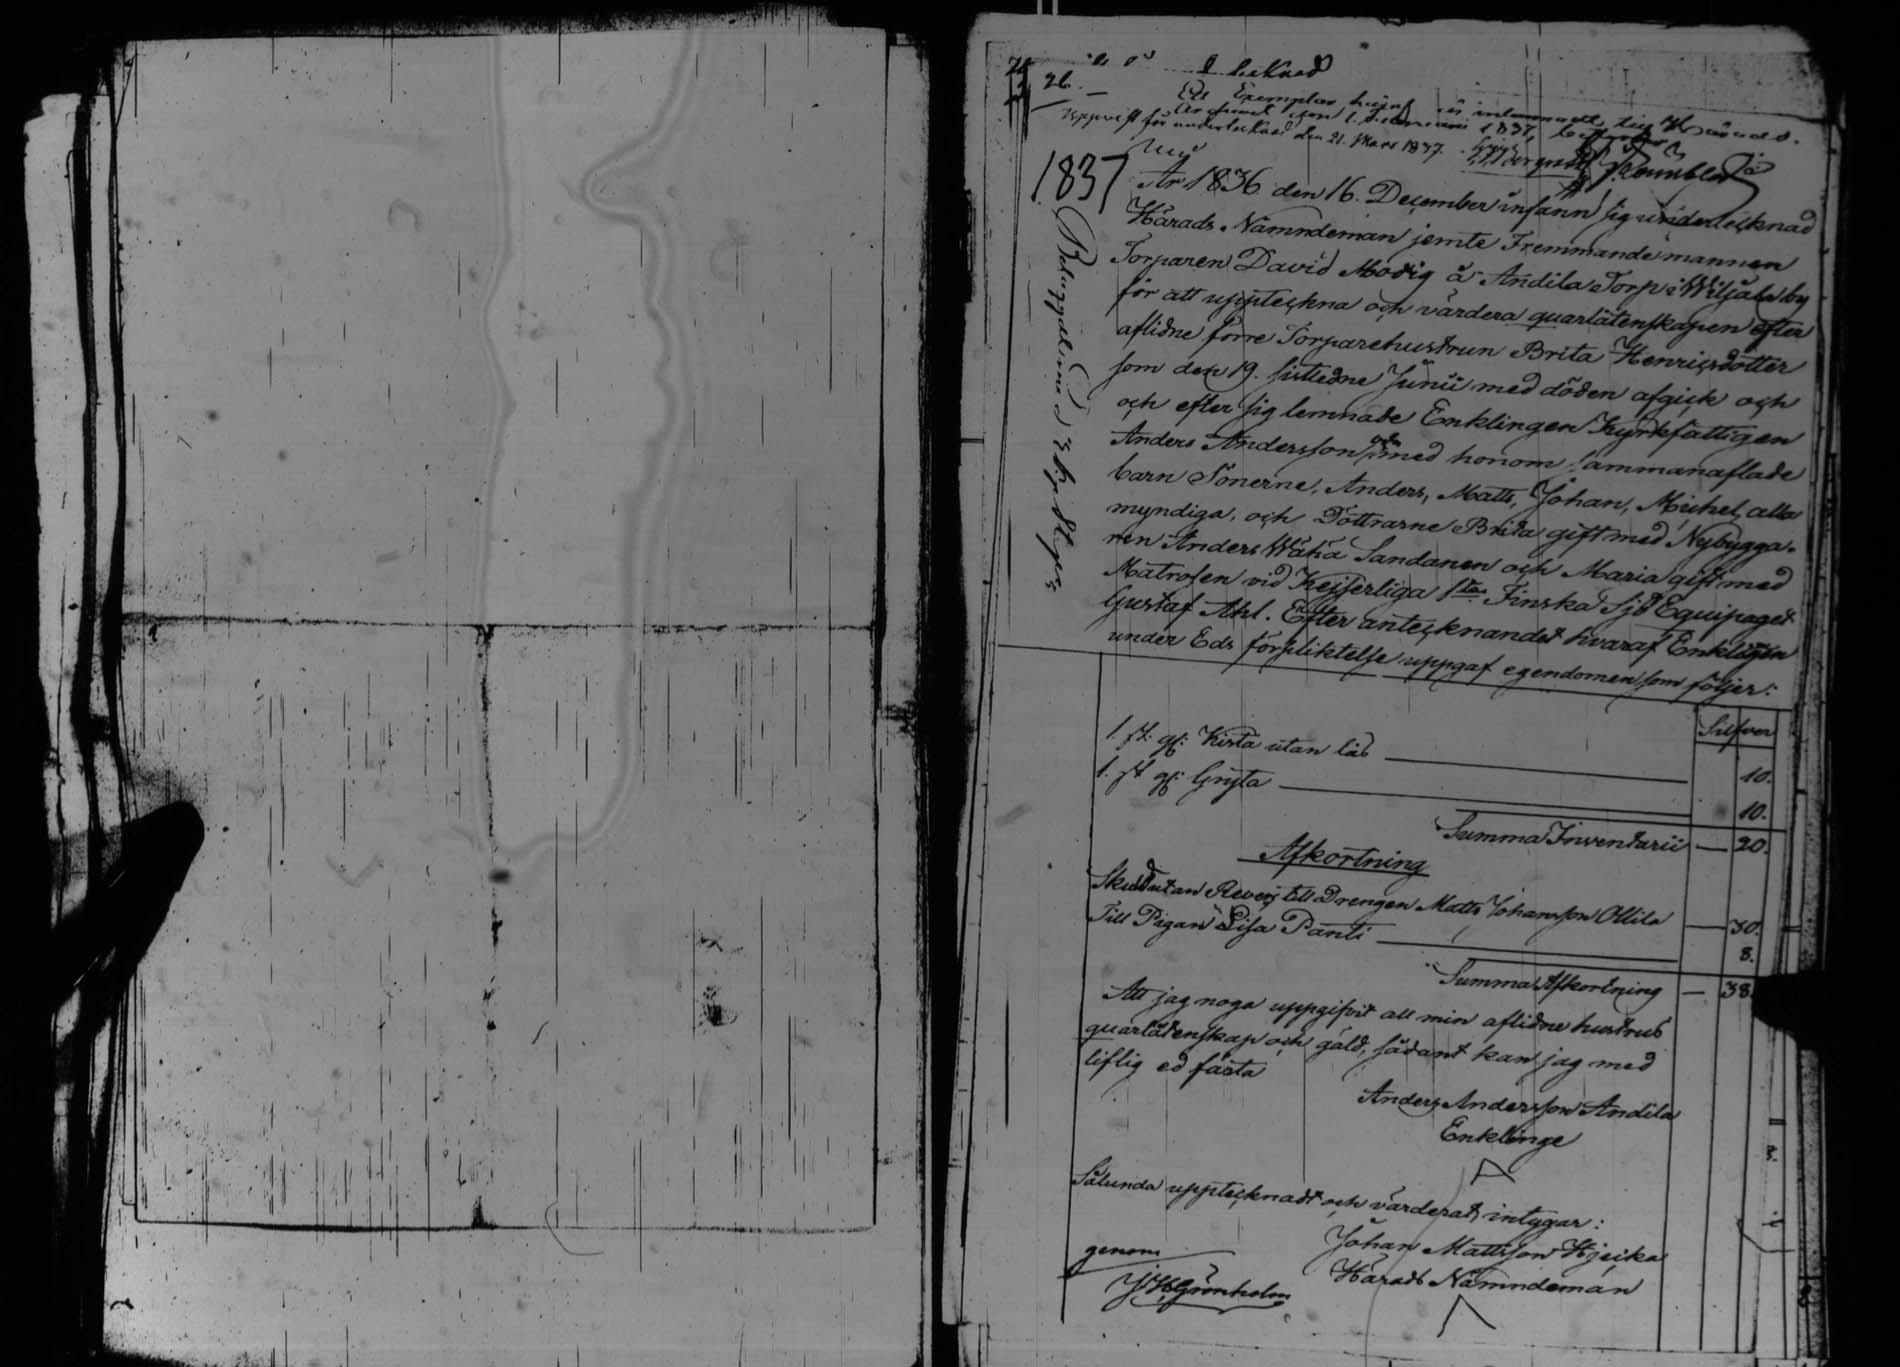 26.
Ett Exemplar häraf är inlemnadt till Härads.
Uppvist för undertecknad den 21. Mars 1837.
1837
År 1836 den 16. December infann sig undertecknad
Härads Nämndeman jemte Fremmande mannen
Torparen David Modig å Andila Torp i Wiljala by
för att uppteckna och värdera quarlåtenskapen efter
aflidne förre Torparehustrun Brita Henricsdotter
som den 19. sistledne Junii med döden afgick och
och efter sig lemnade Enklingen Kyrkfattigen
Anders Andersson med honom sammanaflade
barn Sönerne, Anders, Matts, Johan, Michel, alla
myndiga, och Döttrarne Brita gift med Nybygga-
ren Anders Wähä Sandanen och Maria gift med
Matrosen vid Kejserliga 1sta Finska Sjö Equipaget
Gustaf Ahl. Efter antecknandet hvaraf Enklingen
under Eds förpliktelse uppgaf egendomen som följer:
Silfver
1. st. gl: Kista utan lås 10.
1. st gl: Gryta 10.
Summa Inventarii 20.
Afkortning
Skuld utan Revers till Drengen Matts Johansson Ollila 30.
Till Pigan Lisa Panti 8.
Summa Afkortning 38.
Att jag noga uppgifvit all min aflidne hustrus
quarlåtenskap och gäld, sådant kan jag med
liflig ed fästa
Anders Andersson Andila
Enklinge
Sålunda upptecknadt och värderat, intygar:
Johan Mattsson Hjeika
Härads Nämndeman
genom
J H Grönholm